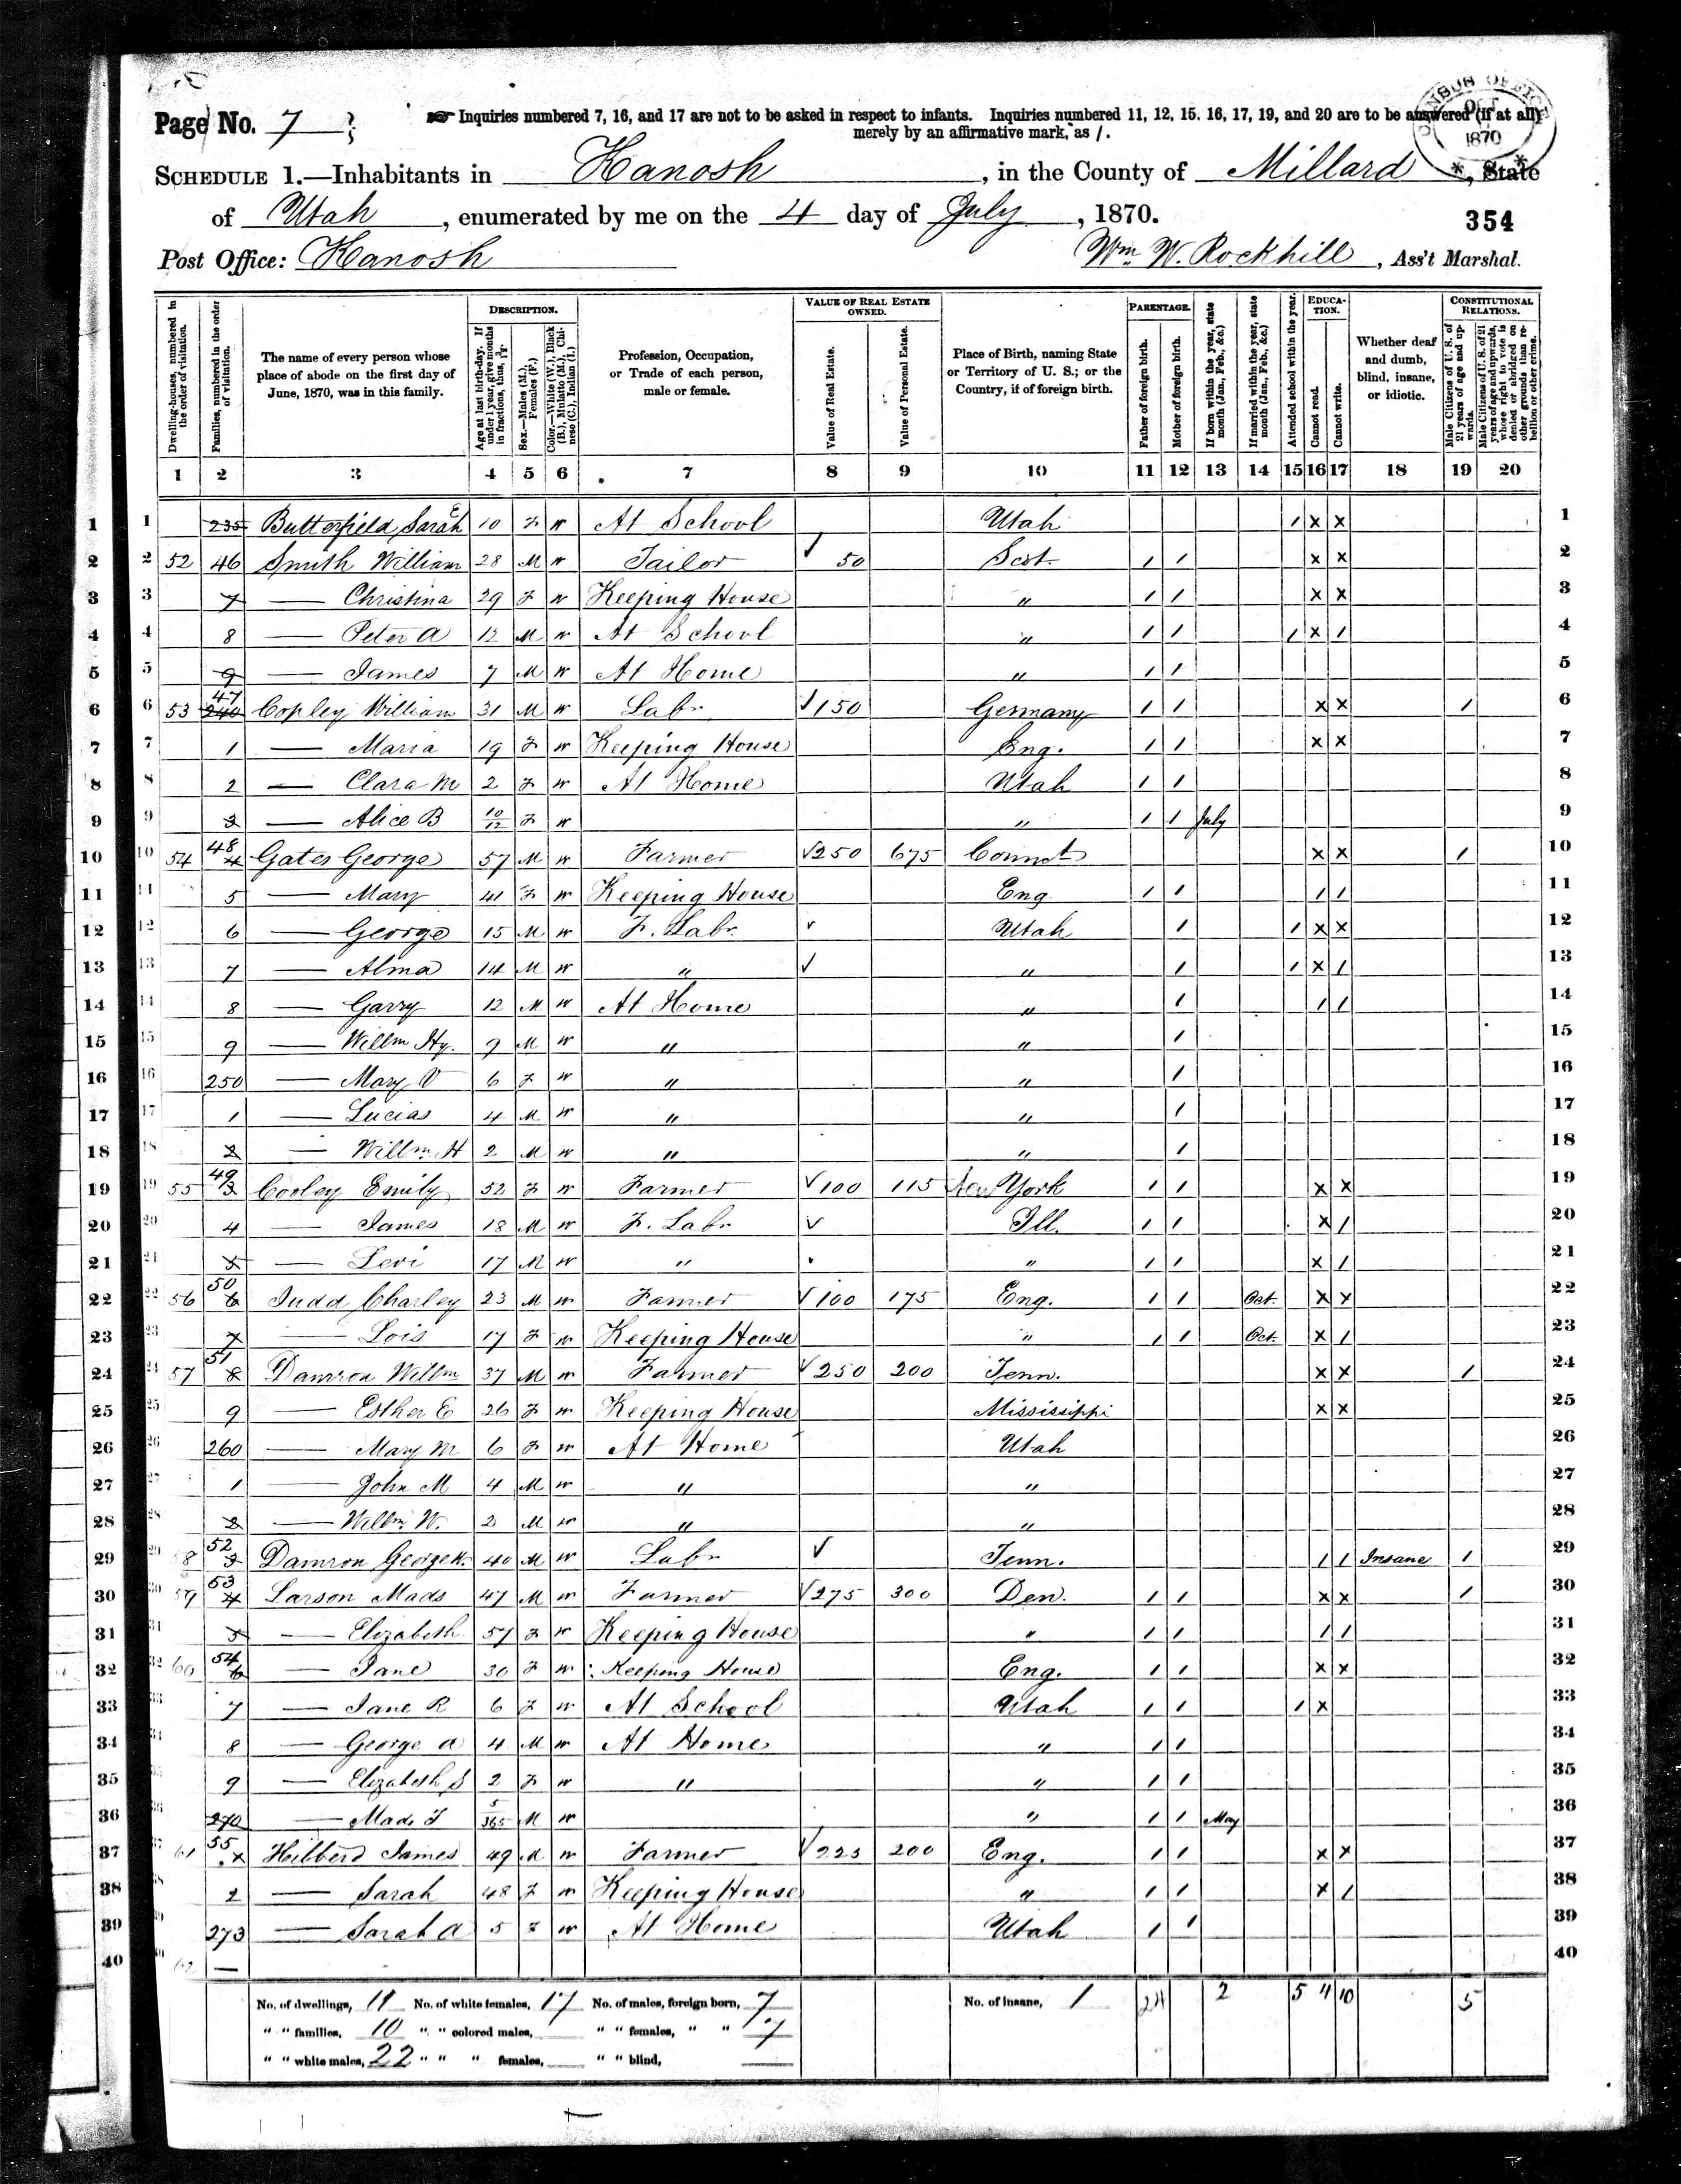 Page No. 7
☞ Inquiries numbered 7, 16, and 17 are not to be asked in respect to infants. Inquiries numbered 11, 12, 15. 16, 17, 19, and 20 are to be answered (if at all)
merely by an affirmative mark, as /.
CENSUS OFFICE
OCT
1870
SCHEDULE 1.—Inhabitants in Kanosh, in the County of Millard, State
of Utah, enumerated by me on the 4 day of July, 1870.
354
Post Office: Kanosh
Wm W. Rockhill, Ass't Marshal.
Dwelling-houses, numbered in the order of visitation.
Families, numbered in the order of visitation.
The name of every person whose place of abode on the first day of June, 1870, was in this family.
DESCRIPTION.
Age at last birth-day. If under 1 year, give months in fractions, thus, 3/12.
Sex.—Males (M.), Females (F.)
Color.—White (W.), Black (B.), Mulatto (M.), Chinese (C.), Indian (I.)
Profession, Occupation, or Trade of each person, male or female.
VALUE OF REAL ESTATE OWNED.
Value of Real Estate.
Value of Personal Estate.
Place of Birth, naming State or Territory of U. S.; or the Country, if of foreign birth.
PARENTAGE.
Father of foreign birth.
Mother of foreign birth.
If born within the year, state month (Jan., Feb., &c.)
If married within the year, state month (Jan., Feb., &c.)
Attended school within the year.
EDUCATION.
Cannot read.
Cannot write.
Whether deaf and dumb, blind, insane, or idiotic.
CONSTITUTIONAL RELATIONS.
Male Citizens of U. S. of 21 years of age and upwards.
Male Citizens of U. S. of 21 years of age and upwards, whose right to vote is denied or abridged on other grounds than rebellion or other crime.
1 2 3 4 5 6 7 8 9 10 11 12 13 14 15 16 17 18 19 20
1 235 Butterfield Sarah E 10 F W At School Utah / x x 1
2 52 46 Smith William 28 M W Tailor ✓ 50 Scot. / / x x 2
3 7 — Christina 29 F W Keeping House " / / x x 3
4 8 — Peter A 12 M W At School " / / / x / 4
5 9 — James 7 M W At Home " / / 5
6 53 47 240 Copley William 31 M W Labr ✓ 150 Germany / / x x / 6
7 1 — Maria 19 F W Keeping House Eng. / / x x 7
8 2 — Clara M 2 F W At Home Utah / / 8
9 3 — Alice B 10/12 F W " / / July 9
10 54 48 4 Gates George 57 M W Farmer ✓ 250 675 Connct x x / 10
11 5 — Mary 41 F W Keeping House Eng / / / / 11
12 6 — George 15 M W F. Labr. ✓ Utah / / x x 12
13 7 — Alma 14 M W " ✓ " / / x / 13
14 8 — Garry 12 M W At Home " / / / 14
15 9 — Willm Hy. 9 M W " " / 15
16 250 — Mary V 6 F W " " / 16
17 1 — Lucias 4 M W " " / 17
18 2 — Willm H 2 M W " " / 18
19 55 49 3 Cooley Emily 52 F W Farmer ✓ 100 115 New York / / x x 19
20 4 — James 18 M W F. Labr ✓ Ill. / / x / 20
21 5 — Levi 17 M W " " / / x / 21
22 56 50 6 Judd Charley 23 M W Farmer ✓ 100 175 Eng. / / Oct. x x 22
23 7 — Lois 17 F W Keeping House " / / Oct. x / 23
24 57 51 8 Damron Willm 37 M W Farmer ✓ 250 200 Tenn. x x / 24
25 9 — Esther E 26 F W Keeping House Mississippi x x 25
26 260 — Mary M 6 F W At Home Utah 26
27 1 — John M 4 M W " " 27
28 2 — Willm. W. 2 M W " " 28
29 58 52 3 Damron George W. 40 M W Labr ✓ Tenn. / / Insane / 29
30 59 53 4 Larson Mads 47 M W Farmer ✓ 275 300 Den. / / x x / 30
31 5 — Elizabeth 57 F W Keeping House " / / / / 31
32 60 54 6 — Jane 30 F W Keeping House Eng. / / x x 32
33 7 — Jane R 6 F W At School Utah / / / x 33
34 8 — George A 4 M W At Home " / / 34
35 9 — Elizabeth S 2 F W " " / / 35
36 270 — Mads T 5/365 M W " / / May 36
37 61 55 x Hibberd James 49 M W Farmer ✓ 225 200 Eng. / / x x 37
38 2 — Sarah 48 F W Keeping House " / / x / 38
39 273 — Sarah A 5 F W At Home Utah / / 39
40 62 — 40
No. of dwellings, 11 No. of white females, 17 No. of males, foreign born, 7 No. of insane, 1 24 2 5 4 10 5
" " families, 10 " " colored males, " " females, " " 7
" " white males, 22 " " " females, " " blind,